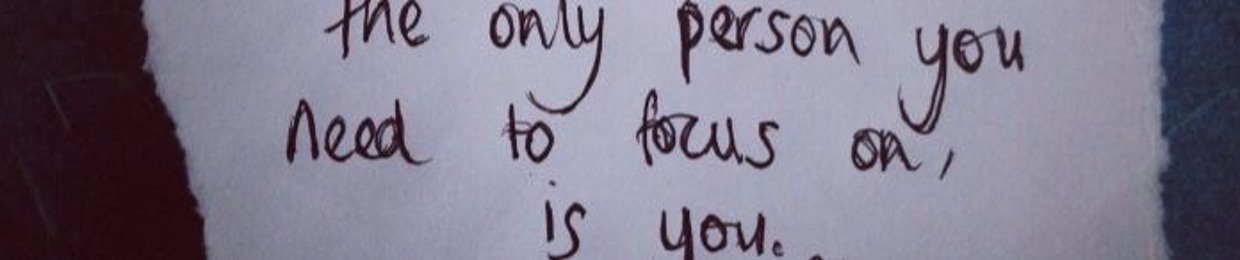 the only person you
need to focus on,
is you.